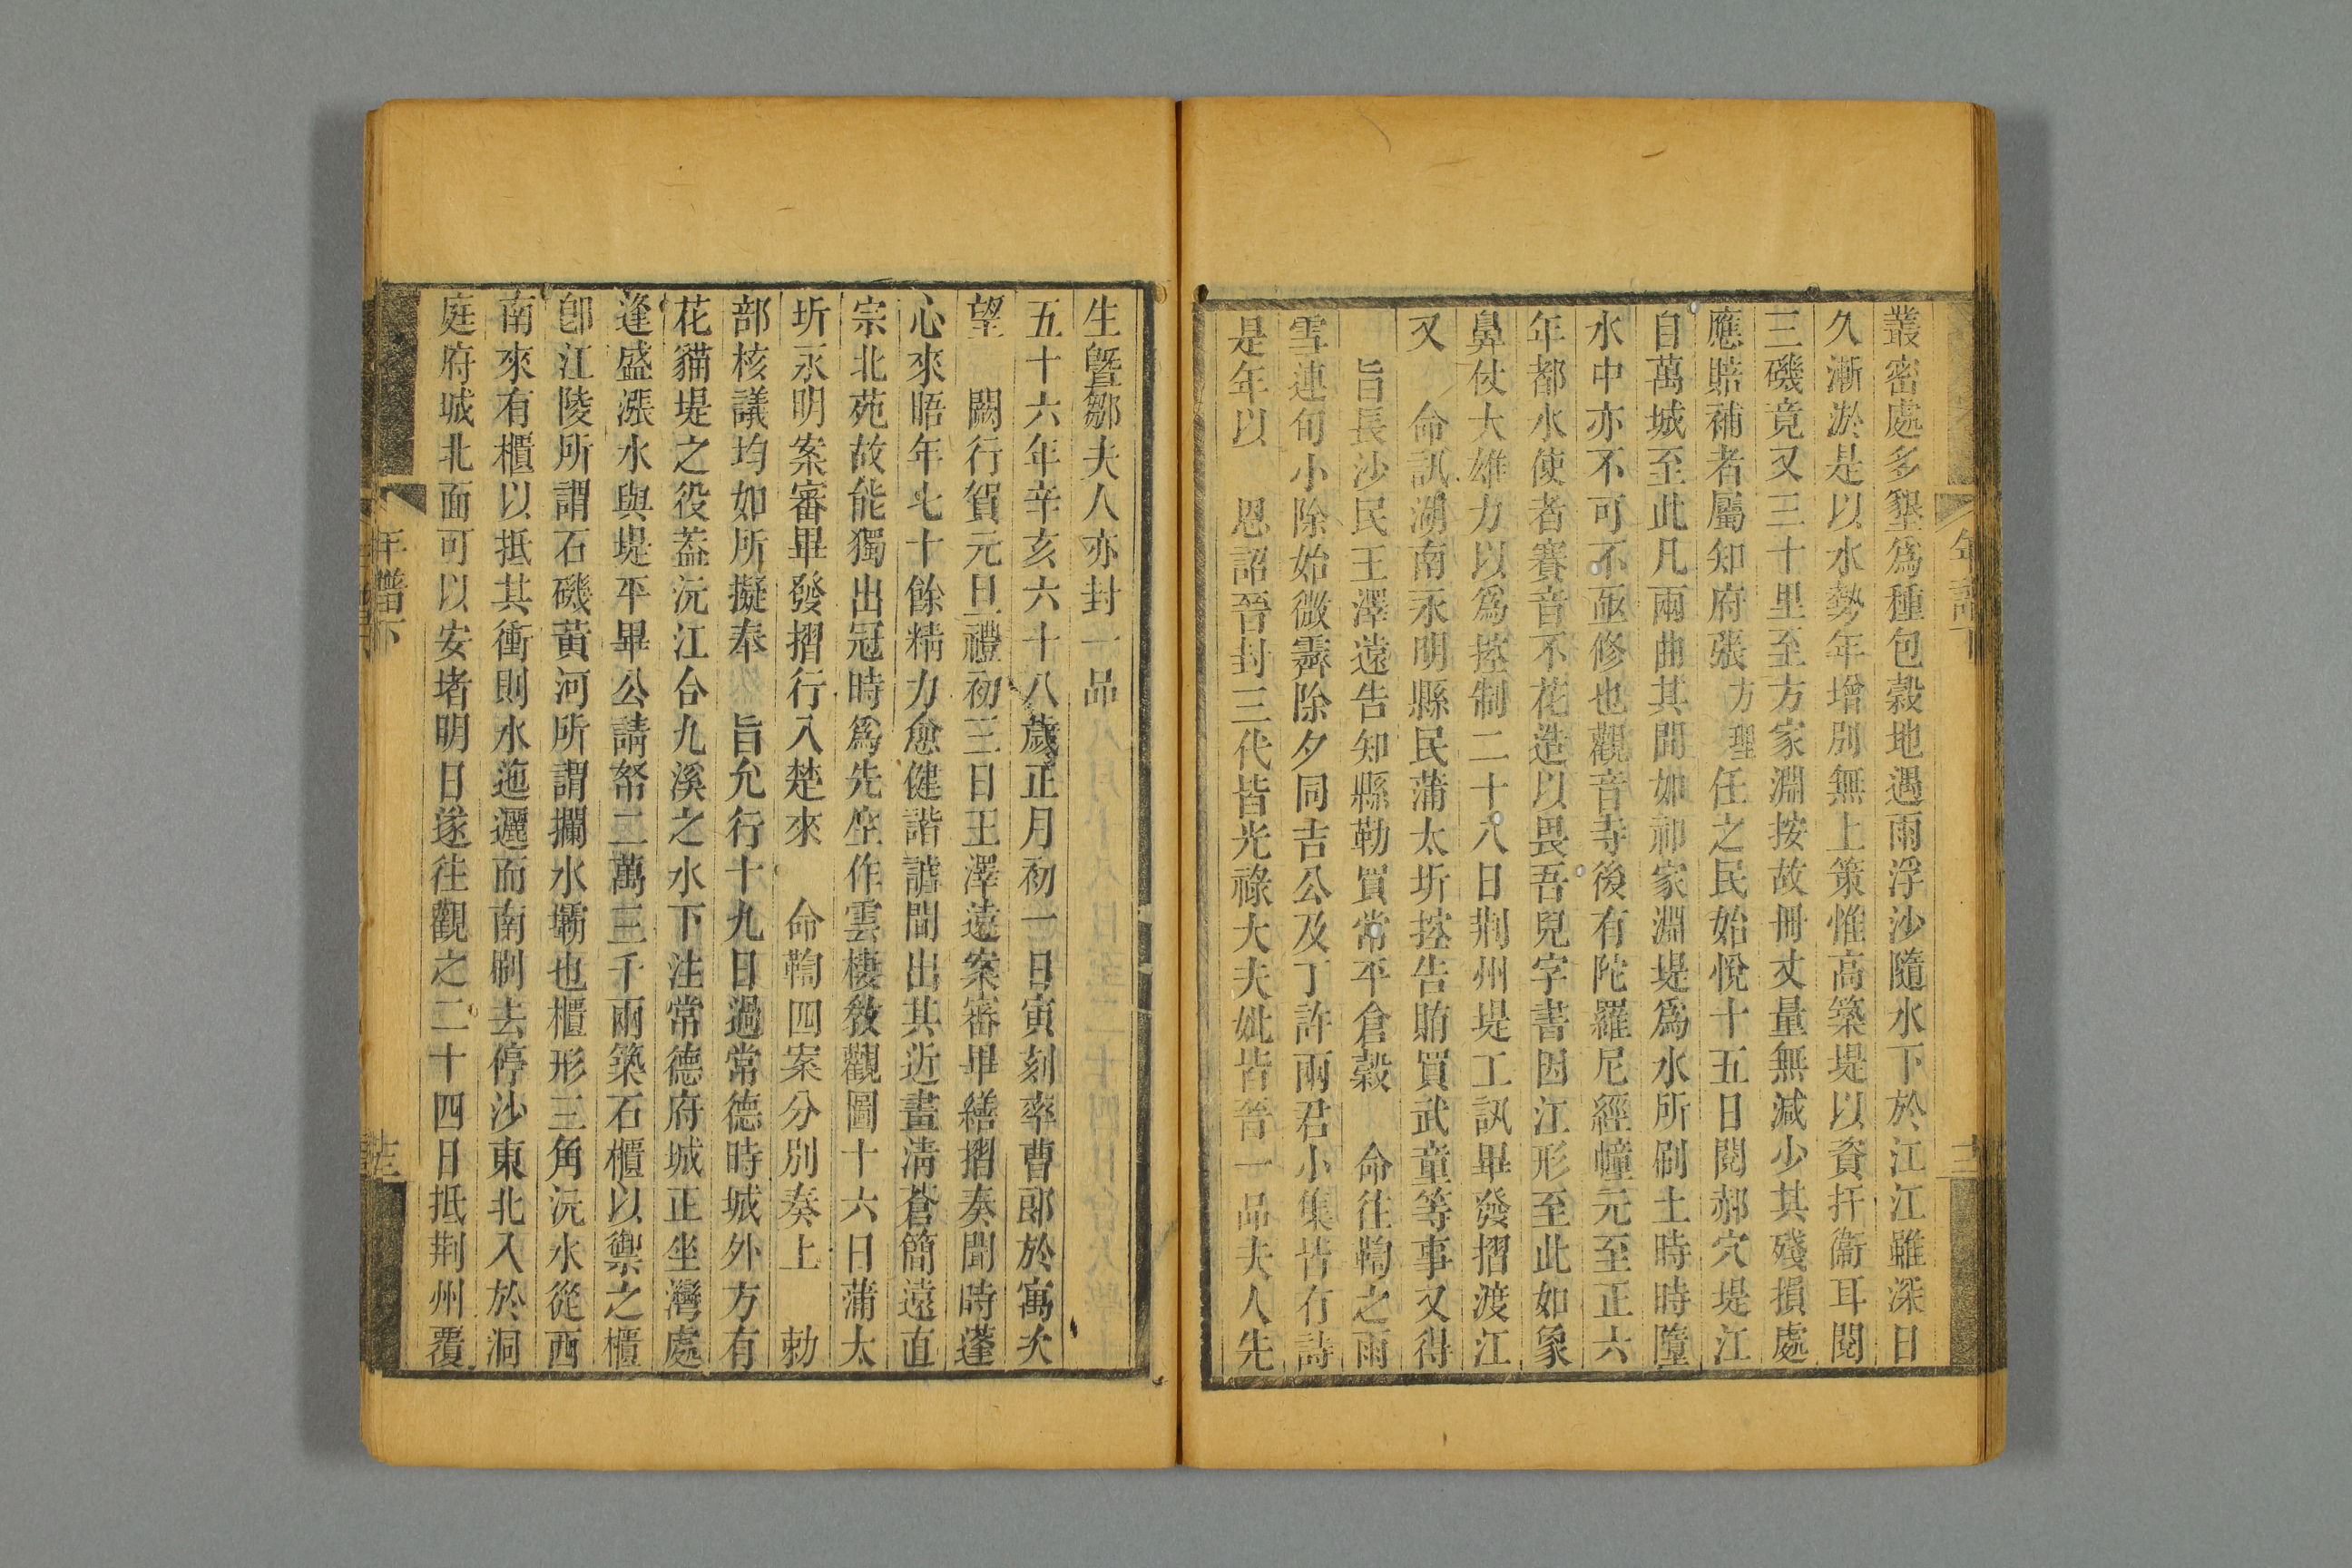 叢密處多墾爲種包穀地遇雨浮沙隨水下於江江雖深日
久漸淤是以水勢年增別無上策惟高築堤以資扞衞耳閱
三磯竟又三十里至方家淵按故冊丈量無減少其殘損處
應賠補者屬知府張方理任之民始悅十五日閱郝穴堤江
自萬城至此凡兩曲其間如祁家淵堤爲水所刷土時時墮
水中亦不可不亟修也觀音寺後有陀羅尼經幢元至正六
年都水使者賽音不花造以畏吾兒字書因江形至此如象
鼻仗大雄力以爲控制二十八日荆州堤工訊畢發摺渡江
又　命訊湖南永明縣民蒲太圻控告賄買武童等事又得
旨長沙民王澤遠告知縣勒買常平倉穀　命往鞫之雨
雪連旬小除始微霽除夕同吉公及丁許兩君小集皆有詩
是年以　恩詔晉封三代皆光祿大夫妣皆晉一品夫人先
年譜下
十二
生曁鄒夫人亦封一品
五十六年辛亥六十八歲正月初一日寅刻率曹郎於寓次
望　闕行賀元旦禮初三日王澤遠案審畢繕摺奏聞時蓬
心來晤年七十餘精力愈健諧謔間出其近畫淸蒼簡遠直
宗北苑故能獨出冠時爲先生作雲棲敎觀圖十六日蒲太
圻永明案審畢發摺行入楚來　命鞫四案分別奏上　勅
部核議均如所擬奉　旨允行十九日過常德時城外方有
花貓堤之役蓋沅江合九溪之水下注常德府城正坐灣處
逢盛漲水與堤平畢公請帑二萬三千兩築石櫃以禦之櫃
卽江陵所謂石磯黃河所謂攔水壩也櫃形三角沅水從西
南來有櫃以抵其衝則水迤邐而南刷去停沙東北入於洞
庭府城北面可以安堵明日遂往觀之二十四日抵荆州覆
年譜下